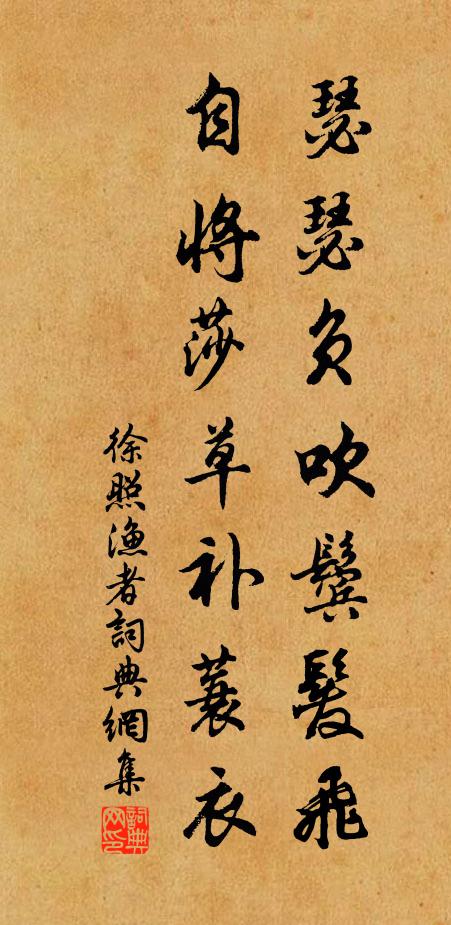 瑟瑟負吹鬢髮飛
自將莎草补蓑衣
徐照漁者詞典網集
詞典
网印